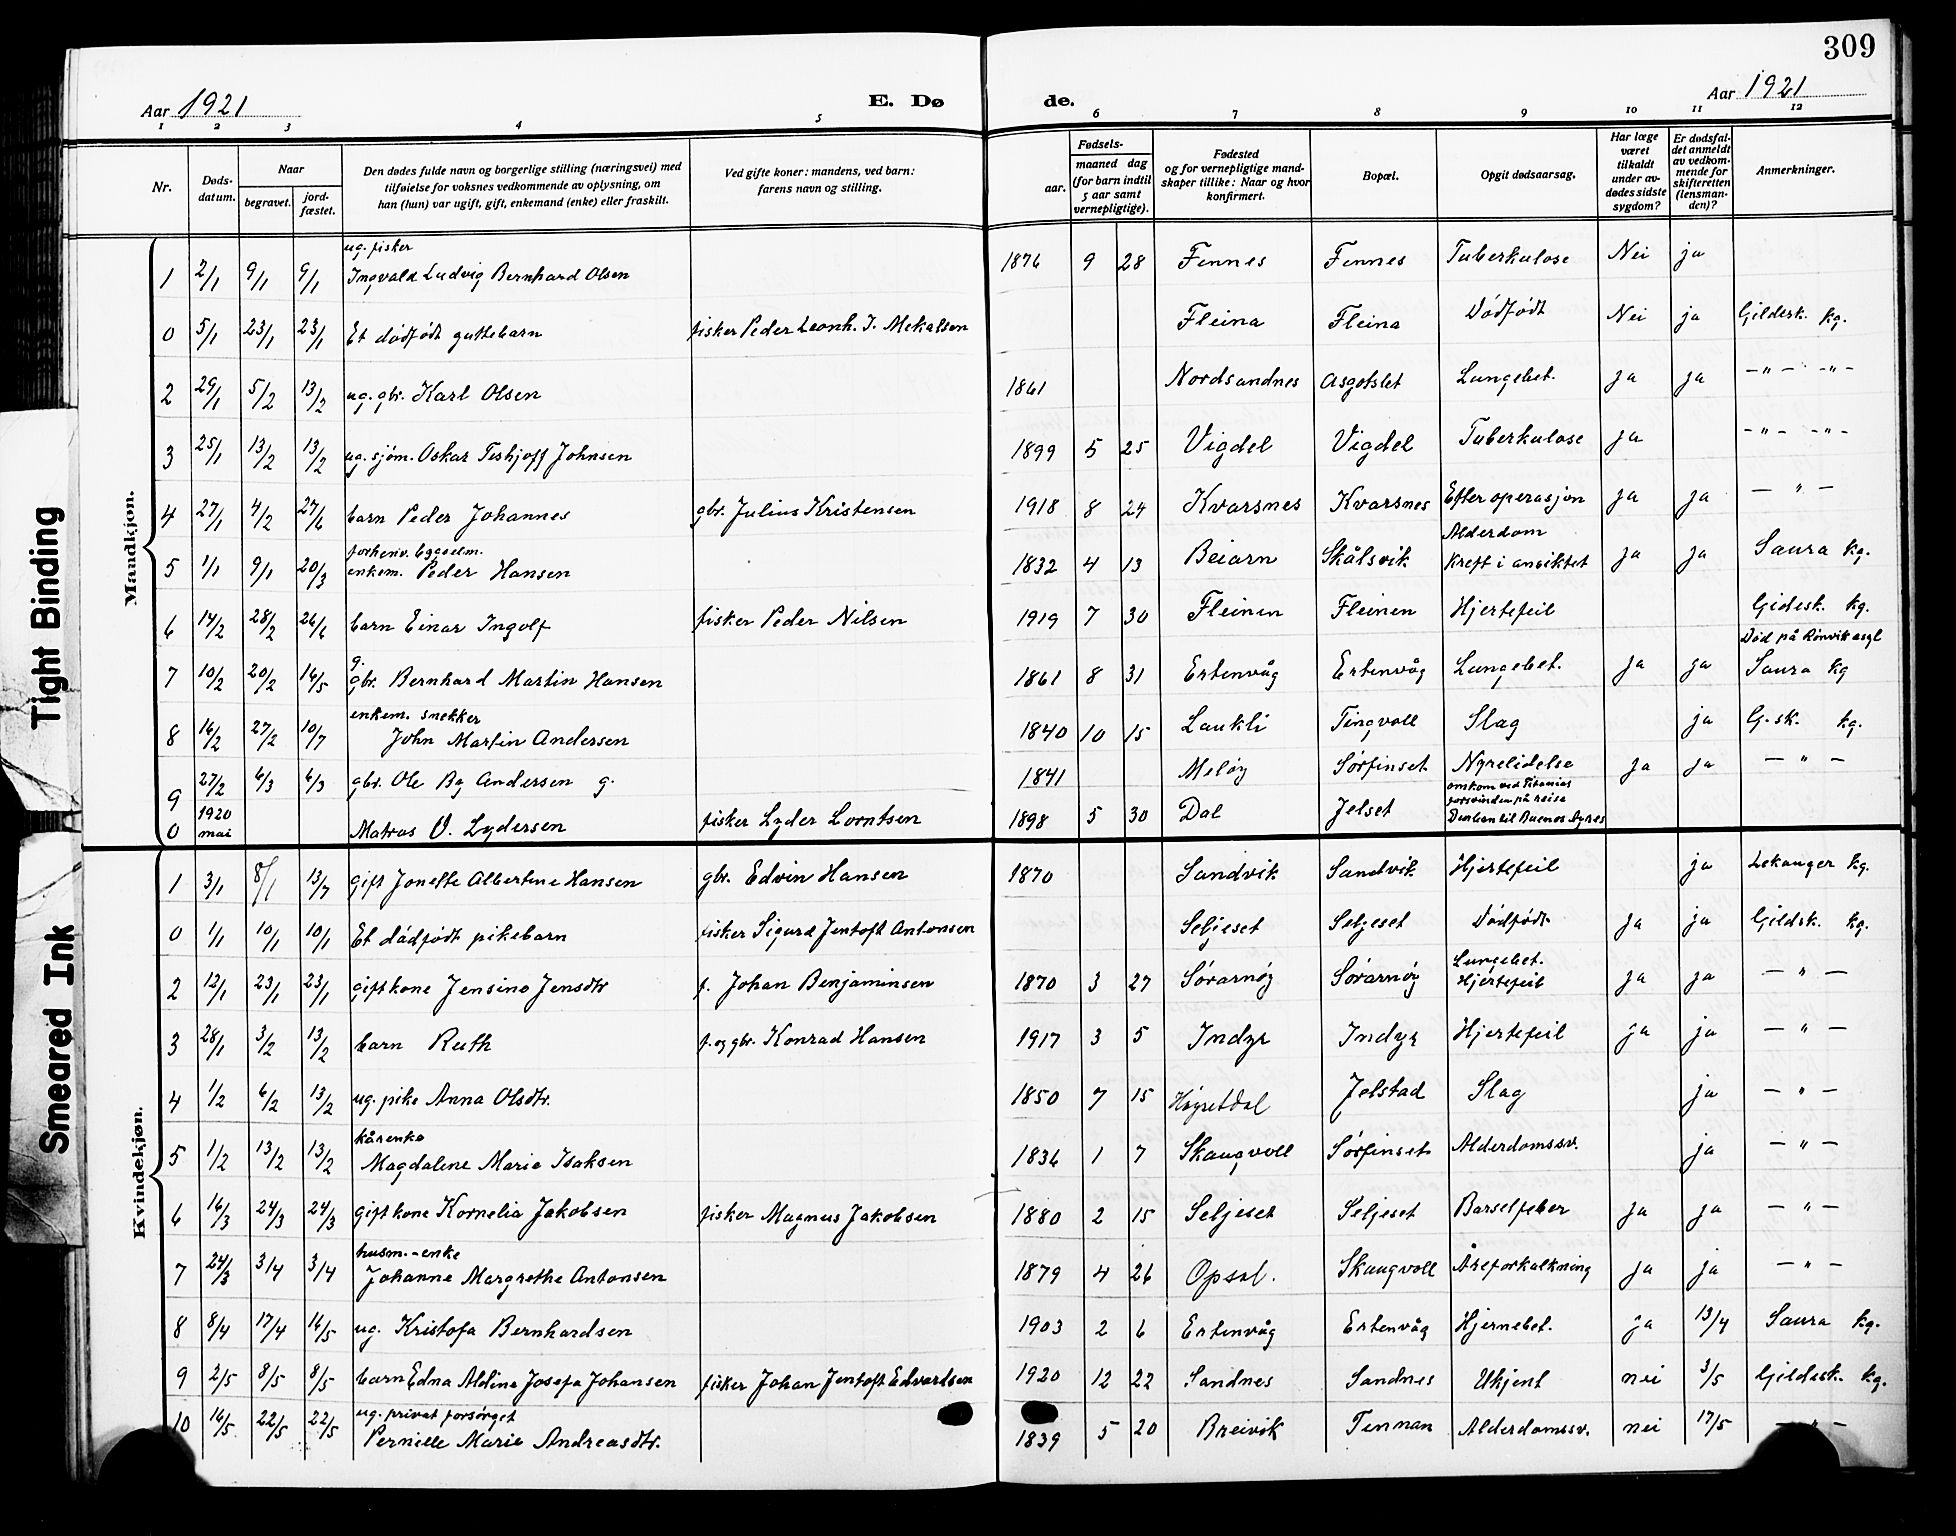 309
Aar 1921 E. Dø de. Aar 1921
1 2 3 4 5 6 7 8 9 10 11 12
Nr. Døds-datum. Naar begravet. jord-fæstet. Den dødes fulde navn og borgerlige stilling (næringsvei) med tilføielse for voksnes vedkommende av oplysning, om han (hun) var ugift, gift, enkemand (enke) eller fraskilt. Ved gifte koner: mandens, ved barn: farens navn og stilling. Fødsels- aar. maaned dag (for barn indtil 5 aar samt vernepligtige). Fødested og for vernepligtige mandskaper tillike: Naar og hvor konfirmert. Bopæl. Opgit dødsaarsag. Har læge været tilkaldt under avdødes sidste sygdom? Er dødsfaldet anmeldt av vedkommende for skifteretten (lensmanden)? Anmerkninger.
Mandkjøn.
1 2/1 9/1 9/1 ug. fisker Ingvald Ludvig Bernhard Olsen 1876 9 28 Fennes Fennes Tuberkulose Nei ja
0 5/1 23/1 23/1 Et dødfødt guttebarn fisker Peder Leonh. J. Mekalsen Fleina Fleina Dødfødt Nei ja Gildesk. kg.
2 29/1 5/2 13/2 ug. gbr. Karl Olsen 1861 Nordsandnes Asgotslet Lungebet. ja ja -"- -"-
3 25/1 13/2 13/2 ug. sjøm. Oskar Teshjoff Johnsen 1899 5 25 Vigdel Vigdel Tuberkulose ja -"- -"-
4 27/1 4/2 27/6 barn Peder Johannes gbr. Julius Kristensen 1918 8 24 Kvarsnes Kvarsnes Efter operasjon ja ja -"-
5 1/1 9/1 20/3 forhenv. enkem. Peder Hansen 1832 4 13 Beiarn Skålsvik Alderdom Kreft i ansiktet ja ja Saura kg.
6 14/2 28/2 26/6 barn Einar Ingolf fisker Peder Nilsen 1919 7 30 Fleinen Fleinen Hjertefeil Gidesk. kg.
7 10/2 20/2 16/5 g. gbr. Bernhard Martin Hansen 1861 8 31 Ertenvåg Ertenvåg Lungebet. ja ja Død på Rønvik asyl Saura kg
8 16/2 27/2 10/7 enkem. snekker John Martin Andersen 1840 10 15 Laukli Tingvoll Slag ja G.sk. kg.
9 27/2 6/3 6/3 gbr. Ole Bg Andersen g. 1841 Meløy Sørfinset Nyrelidelse ja ja -"-
0 1920 mai Matras V. Lydersen fisker Lyder Lorntsen 1898 5 30 Dal Jelset omkom ved Titanias forsvinden på reise Durban til Buenos Ayres
Kvindekjøn.
1 3/1 8/1 13/7 gift Jonette Albertine Hansen gbr. Edvin Hansen 1870 Sandvik Sandvik Hjertefeil ja Lekanger kg.
0 1/1 10/1 10/1 Et dødfødt pikebarn fisker Sigurd Jentoft Antonsen Seljeset Seljeset Dødfødt ja ja Gildsk. kg.
2 12/1 23/1 23/1 gift kone Jensine Jensdtr f. Johan Benjaminsen 1870 3 27 Sørarnøy Sørarnøy Lungebet. Hjertefeil ja ja -"-
3 28/1 3/2 13/2 barn Ruth f. og gbr. Konrad Hansen 1917 3 5 Indyr Indyr Hjertefeil ja ja -"-
4 1/2 6/2 13/2 ug. pike Anna Olsdtr. 1850 7 15 Høyretdal Jelstad Slag ja -"-
5 1/2 13/2 13/2 kårenke Magdalene Marie Isaksen 1836 1 7 Skaugvoll Sørfinset Alderdomssv. ja -"-
6 16/3 24/3 24/3 gift kone Kornelia Jakobsen fisker Magnus Jakobsen 1880 2 15 Seljeset Seljeset Barselfeber ja ja -"-
7 24/3 3/4 3/4 husm.-enke Johanne Margrethe Antonsen 1879 4 26 Opsal. Skaugvoll Åreforkalkning ja ja -"-
8 8/4 17/4 16/5 ug. Kristofa Bernhardsen 1903 2 6 Ertenvåg Ertenvåg Hjernebet. ja 13/4 Saura kg.
9 2/5 8/5 8/5 barn Edna Aldine Josefa Johansen fisker Johan Jentoft Edvardsen 1920 12 22 Sandnes Sandnes Ukjent nei 3/5 Gildesk. kg.
10 16/5 22/5 22/5 ug. privat forsørget Pernille Marie Andreasdtr. 1839 5 20 Breivik Tennan Alderdomssv. nei 17/5 -"-
Tight Binding
Smeared Ink